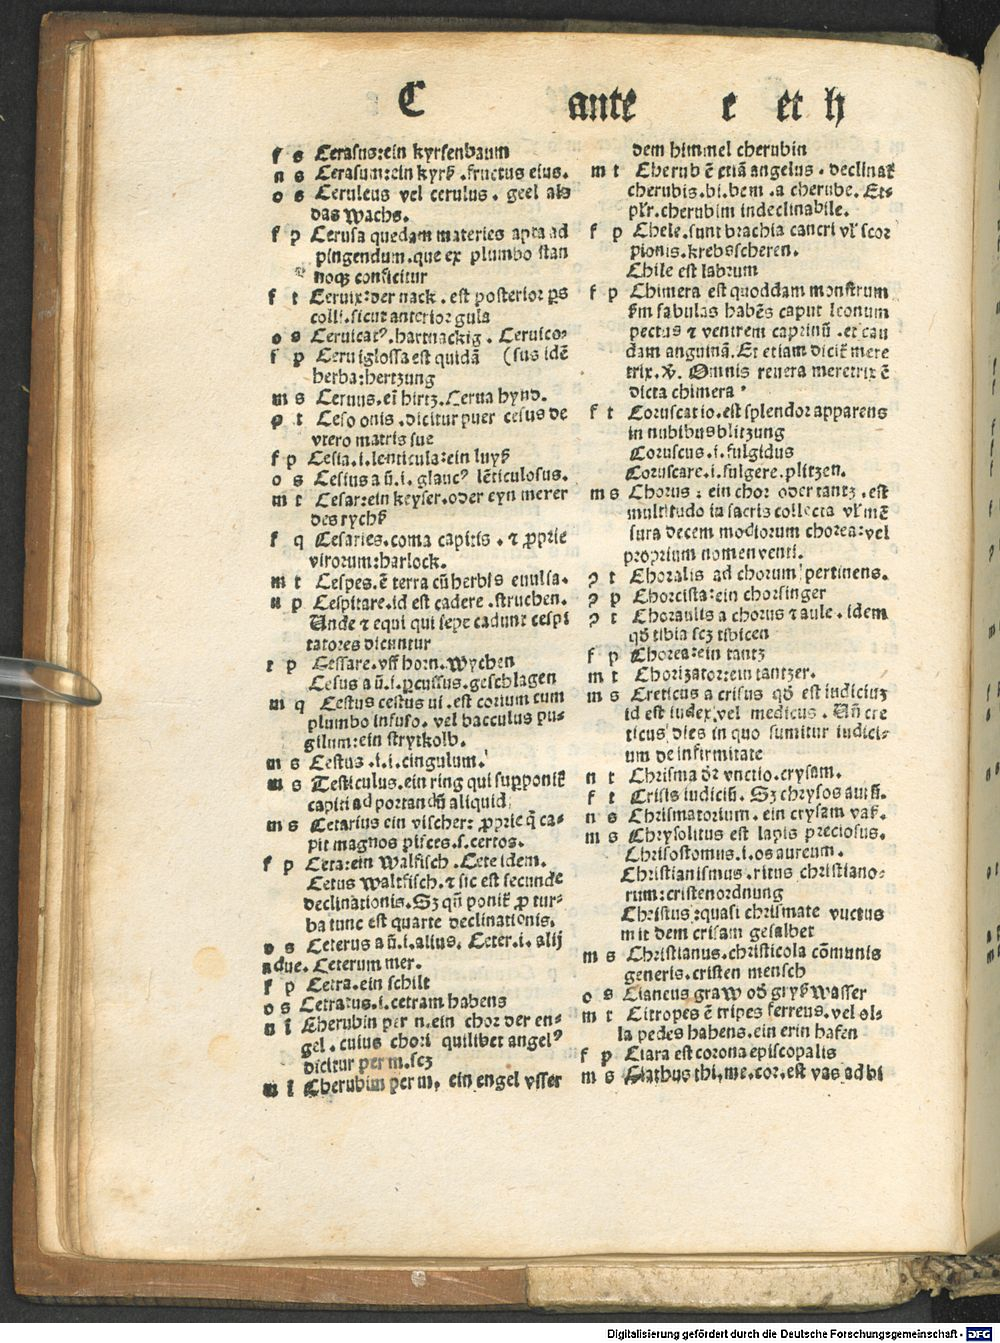 C ante e et h
f s Cerasus:ein kyrsenbaum
n s Cerasum:ein kyrß .fructus eius.
o s Ceruleus vel cerulus . geel als
das wachs.
f p Cerusa quedam materies apta ad
pingendum.que ex plumbo stan
noqꝫ conficitur
f t Ceruix:der nack . est posterior ꝑs
colli.sicut anterior gula
o s Ceruicatꝰ.hartnackig . Ceruico-
f p Ceruiglossa est quidã (sus idẽ
herba:hertzung
m s Ceruus.eĩ hirtz.Cerua hynd.
ꝯ t Ceso onis .dicitur puer cesus de
vtero matris sue
f p Cesia.i.lenticula:ein luyß
o s Cesius a ũ.i. glaucꝰ lẽticulosus.
m t Cesar:ein keyser.oder eyn merer
des rychß
f q Cesaries.coma capitis . ⁊ ꝓprie
virorum:harlock.
m t Cespes.ẽ terra cũ herbis euulsa.
n p Cespitare.id est cadere .struchen.
Unde ⁊ equi qui sepe cadunt cespi
tatores dicuntur
r p Cessare.vff horn.wychen
Cesus a ũ.i.ꝑcussus.geschlagen
m q Cestus cestus ui .est corium cum
plumbo infuso. vel bacculus pu-
gilum:ein strytkolb.
m s Cestus .i.i.cingulum.
m s Testiculus.ein ring qui supponit̃
capiti ad portandũ aliquid
m s Cetarius ein vischer: ꝓprie q̃ ca-
pit magnos pisces.s.certos.
f p Ceta:ein walfisch .Cete idem.
Cetus waltfisch.⁊ sic est secunde
declinationis.Sꝫ qñ ponit̃ ꝓ tur-
ba tunc est quarte declinationis.
o s Ceterus a ũ.i.alius. Ceter.i. alij
adue. Ceterum mer.
f p Cetra.ein schilt
o s Cetratus.i.cetram habens
n i Cherubin per n.ein chor der en-
gel .cuius chori quilibet angelꝰ
dicitur per m.scꝫ
m i Cherubim per m. ein engel vsser
dem himmel cherubin
m t Cherub ẽ etiã angelus . declinat̃
cherubis.bi.bem .a cherube. Et-
pl̃r.cherubim indeclinabile.
f p Chele.sunt brachia cancri vl̃ scor
pionis.krebsscheren.
Chile est labrum
f p Chimera est quoddam monstrum
ẜm fabulas habẽs caput leonum
pectus ⁊ ventrem caprinũ .et cau
dam anguinã.Et etiam dicit̃ mere
trix.ꝟ. Omnis reuera meretrix ẽ
dicta chimera
f t Coruscatio.est splendor apparens
in nubibusblitzung
Coruscus.i.fulgidus
Coruscare.i.fulgere.plitzen.
m s Chorus : ein chor oder tantz .est
multitudo in sacris collecta vl̃ mẽ
sura decem modiorum chorea:vel
proprium nomen venti.
ꝯ t Choralis ad chorum pertinens.
ꝯ p Chorcista:ein chorsinger
ꝯ t Choraulis a chorus ⁊ aule . idem
qď tibia scꝫ tibicen
f p Chorea:ein tantz
m t Chorizator:ein tantzer.
m s Creticus a crisus qď est iudiciuꝫ
id est iudex,vel medicus . Uñ cre
ticus dies in quo sumitur iudici-
um de infirmitate
n t Chrisma dr̃ vnctio.crysam.
f t Crisis iudiciũ. Sꝫ chrysos aurũ.
n s Chrismatorium . ein crysam vaß.
m s Chrysolitus est lapis preciosus.
Chrisostomus.i.os aureum.
Christianismus .ritus christiano-
rum:cristenordnung
Christus:quasi chrismate vuctus
mit dem crisam gesalbet
m s Christianus.christicola cõmunis
generis.cristen mensch
o s Cianeus graw oď gryß wasser
m t Citropes ẽ tripes ferreus.vel ol-
la pedes habens.ein erin hafen
f p Ciara est corona episcopalis
m s Ciathus thi.me.cor.est vas ad bi
Digitalisierung gefördert durch die Deutsche Forschungsgemeinschaft - DFG